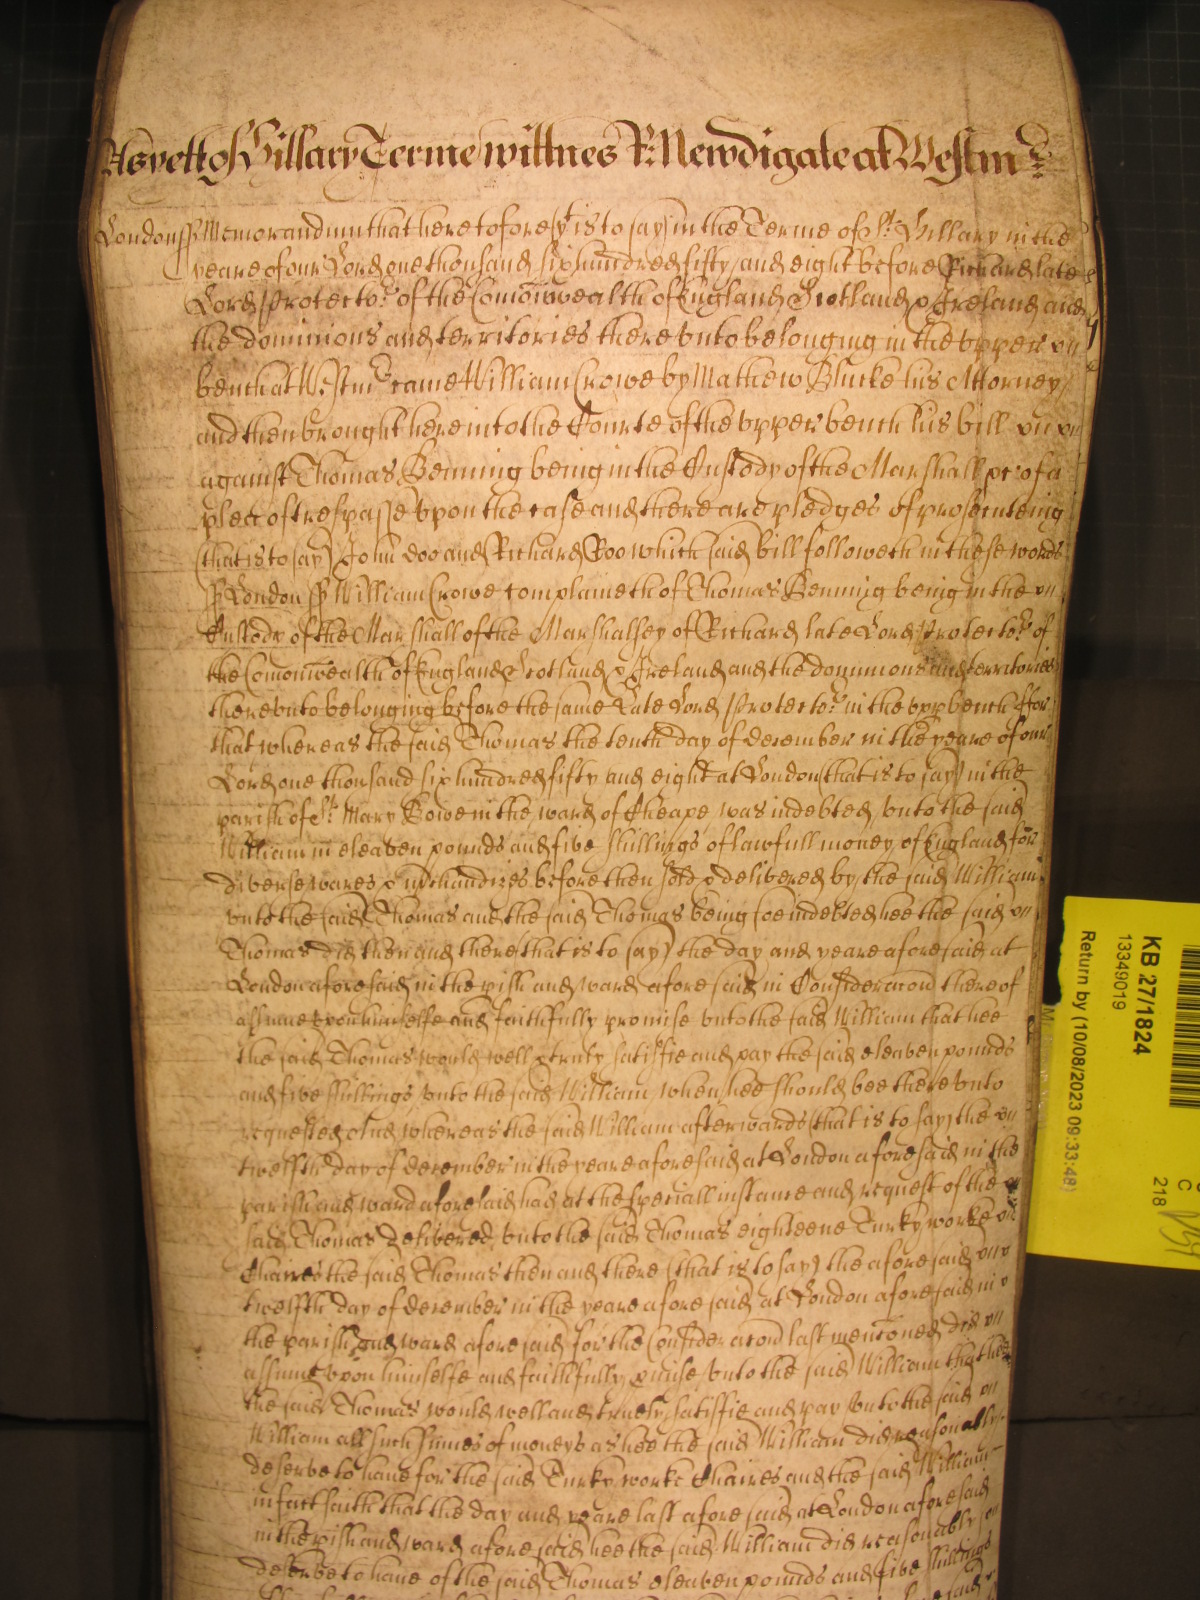 As yett of Hillary Terme wittnes R: Newdigate at Westmr:
London ss Memorandum that heretofore (yt is to say) in the Terme of St: Hillary in the
yeare of our Lord one thousand six hundred fifty and eight before Richard late
Lord Protector: of the Comonwealth of England Scotland & Ireland and
the dominions and territories there vnto belonging in the vpper
bench at Westmr came William Crowe by Mathew Blucke his Attorney
and then brought here into the Courte of the vpper bench his bill
against Thomas Benning being in the Custody of the Marshall &c: of a
plea of trespasse vpon the case and there are pledges of prosecuteing
(that is to say) John Doo and Richard Roo which said bill followeth in these words
ss London ss William Crowe complaineth of Thomas Benning being in the
Custody of the Marshall of the Marshalsey of Richard late Lord Protector: of
the Comonwealth of England Scotland & Ireland and the dominions and territories
there vnto belonging before the same Late Lord Protector: in the vpp bench ffor
that whereas the said Thomas the tenth day of december in the yeare of our
Lord one thousand six hundred fifty and eight at London (that is to say) in the
parish of St: Mary Bowe in the ward of Cheape was indebted vnto the said
William in eleaven pounds and five shillings of lawfull money of England for
diverse wares & mchandizes before then sold & delivered by the said William
vnto the said Thomas and the said Thomas being soe indebted hee the said
Thomas did then and there (that is to say) the day and yeare aforesaid at
London aforesaid in the pish and ward aforesaid in Consideracon thereof
assume vpon himselfe and faithfully promise vnto the said William that hee
the said Thomas would well & truly satisfie and pay the said eleaven pounds
and five shillings vnto the said William when hee should bee there vnto
requested And whereas the said William afterwards (that is to say) the
twelfth day of december in the yeare aforesaid at London aforesaid in the
parish and ward aforesaid had at the speciall instance and request of the
said Thomas delivered vnto the said Thomas eighteene Turky worke
Chaires the said Thomas then and there (that is to say) the aforesaid
twelfth day of december in the yeare aforesaid at London aforesaid in
the parish and ward aforesaid for the Consideracon last menconed did
assume vpon himselfe and faithfully pmise vnto the said William that hee
the said Thomas would well and truely satisfie and pay vnto the said
William all such sumes of moneys as hee the said William did reasonably
deserve to have for the said Turky worke Chaires and the said William
in fact saith that the day and yeare last aforesaid at London aforesaid
in the pish and ward aforesaid hee the said William did reasonably
deserve to have of the said Thomas eleaven pounds and five shillings
KB 27/1824
13349019
Return by (10/08/2023 09:33:48)
C
218